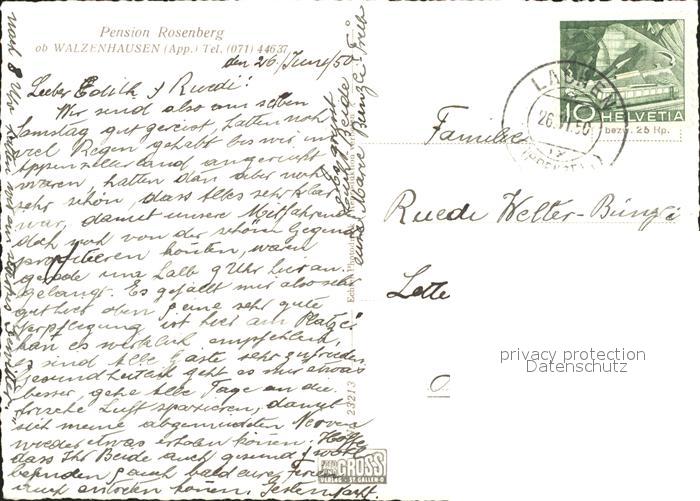 Pension Rosenberg
ob WALZENHAUSEN (App.) Tel. (071) 44637
den 26. Juni/50
Lieber Edith & Ruedi!
Wir sind also am selben
Samstag gut gereist, hatten noch
viel Regen gehabt bis wir im
Appenzellerland angerückt
waren, hatten dann aber noch
sehr schön, dass Alles sehr klar
war, damit unsere Mitfahrende
doch noch von der schönen Gegend
profitieren konnten, waren
gerade um halb 9 Uhr hier an
gelangt. Es gefällt mir also sehr
gut hier oben & eine sehr gute
Verpflegung ist hier am Platze
kan es wirklich empfehlen,
es sind Alle Gäste sehr zufrieden
Gesundheitlich geht es mir etwas
besser, gehe Alle Tage an die
frische Luft spazieren, damit
sich meine abgemüdeten Nerven
wieder etwas erholen können. Hoffe
dass Ihr Beide auch gesund & wohl
befinden & auch bald eure Ferien
auch antreten können.
Es grüsst
Euch Beide
eure Mama Bünzli-Frei
HELVETIA
10
bezw. 25 Rp.
LACHEN
26.VI.50
Familie
Ruedi Welter-Bünzli
23213
GROSS
VERLAG - ST. GALLEN - O
privacy protection
Datenschutz